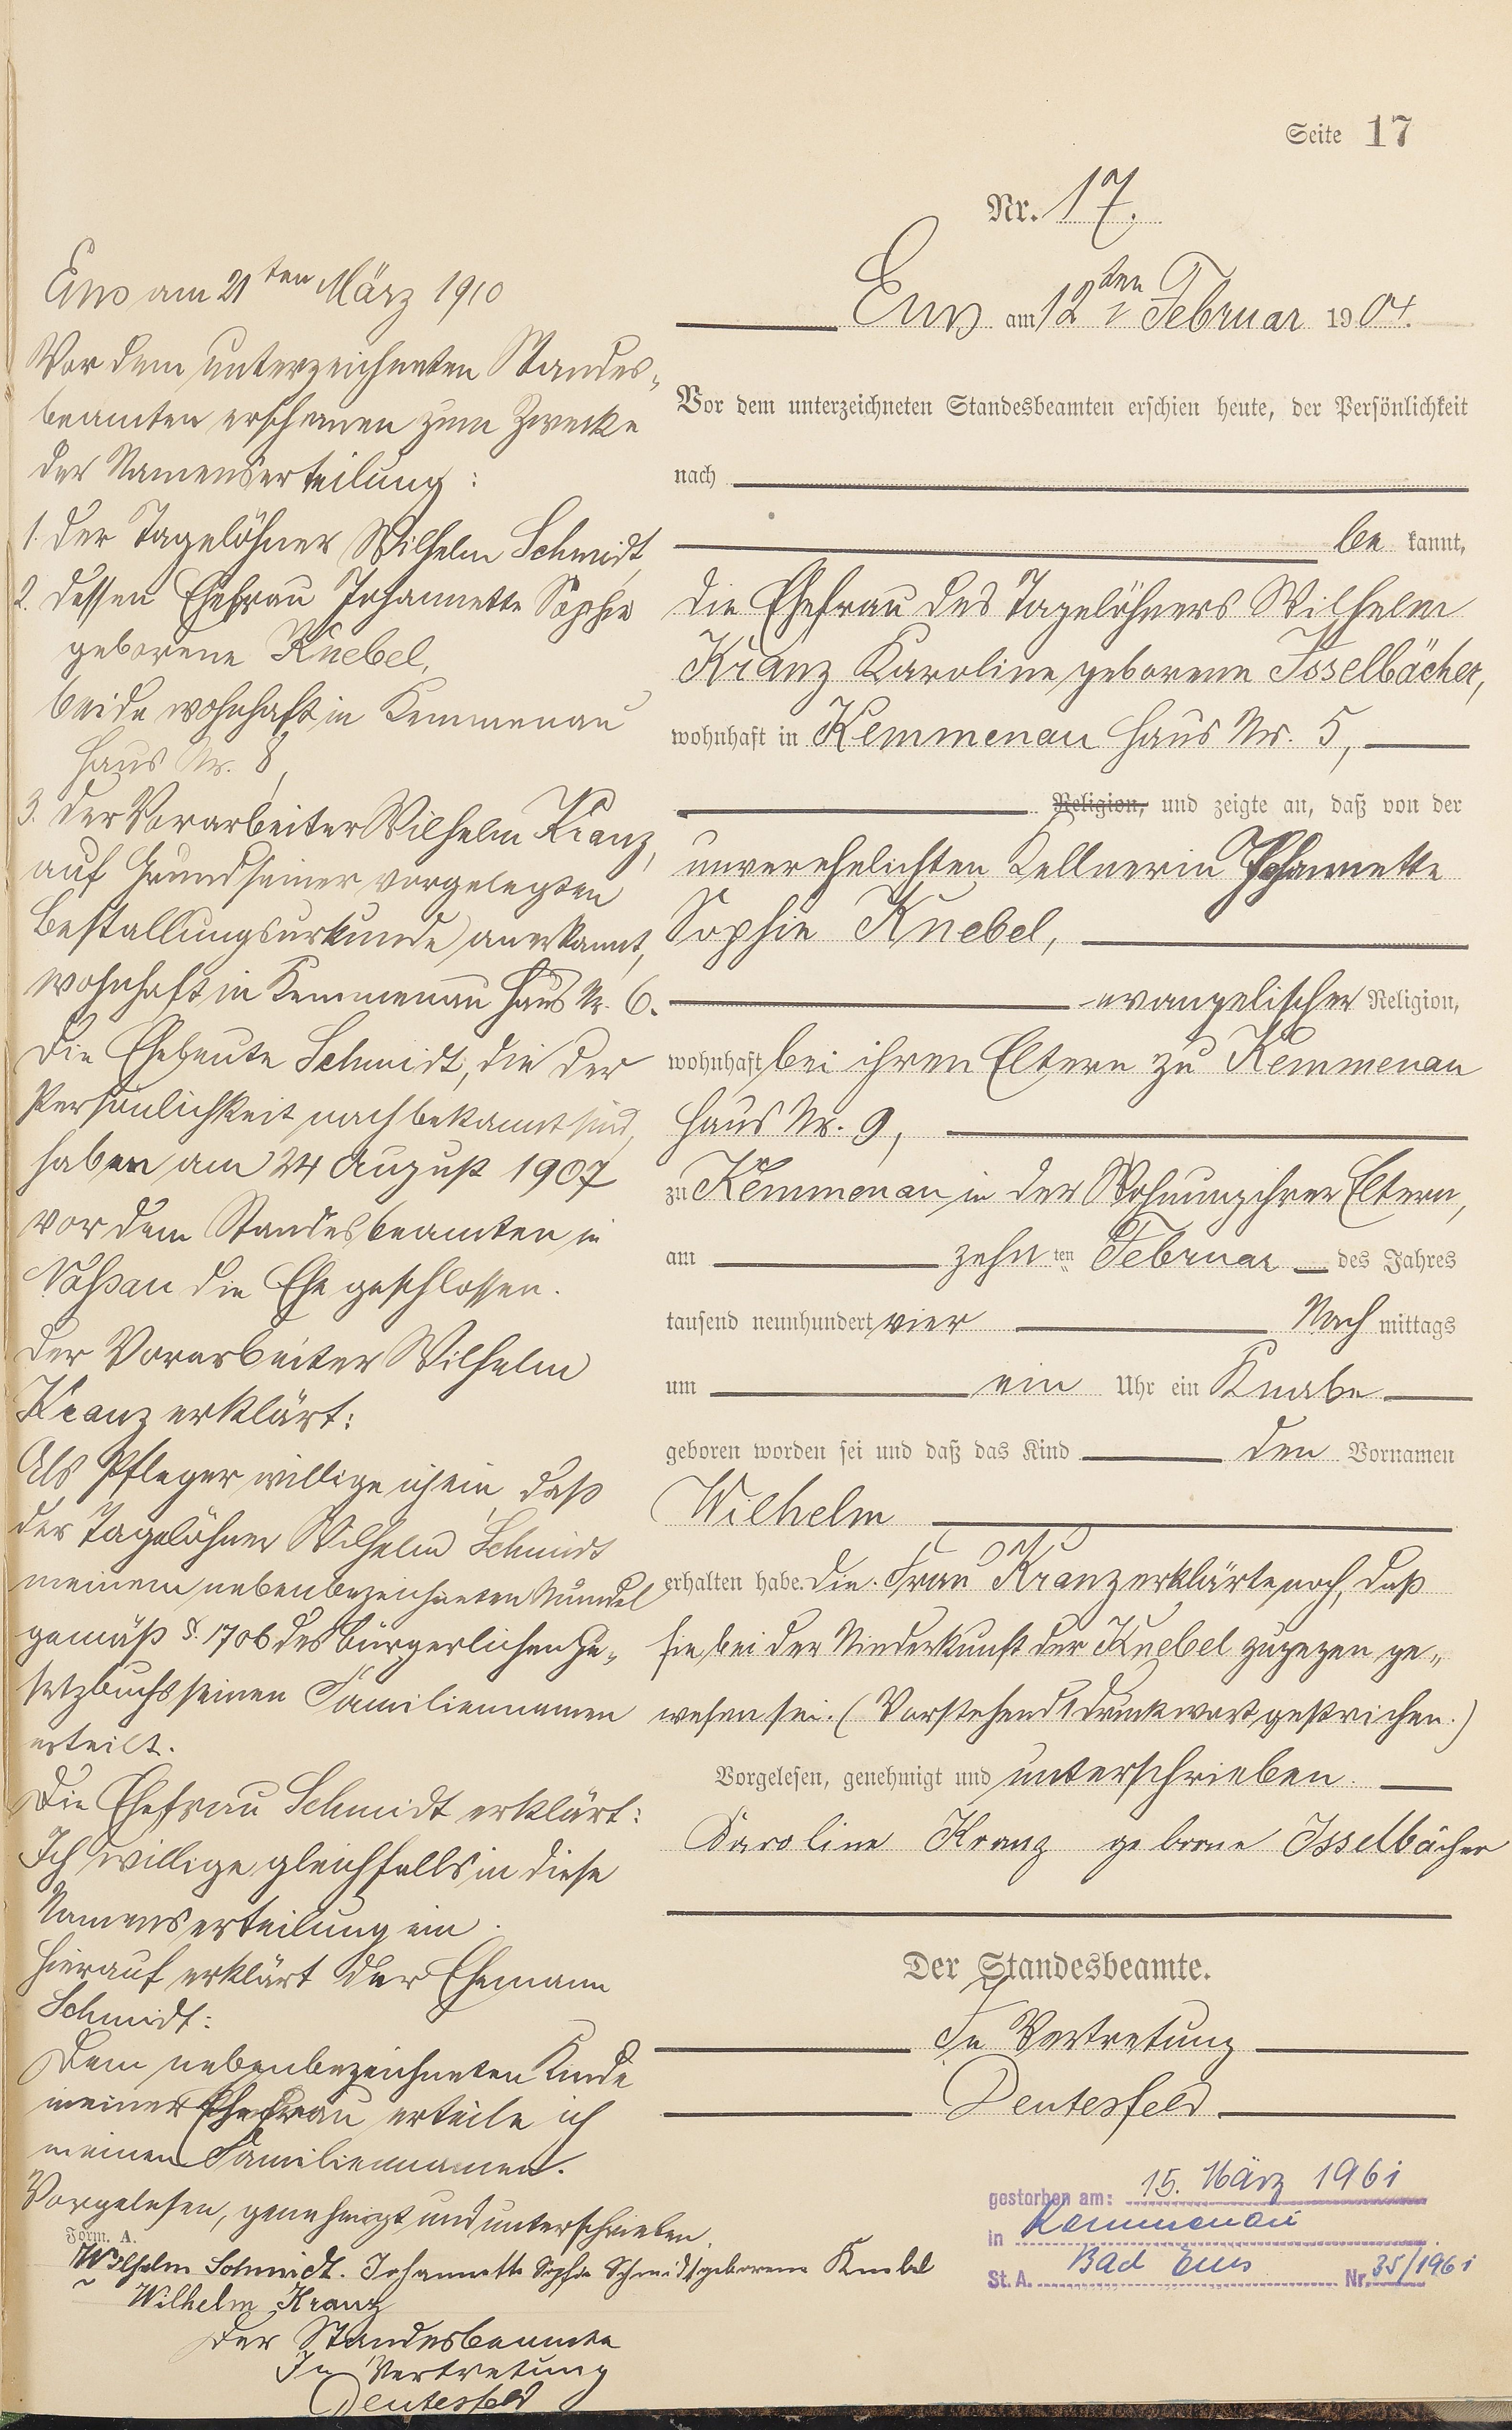 Seite 17
Nr. 17.
Ems am 12ten Februar 1904.
Vor dem unterzeichneten Standesbeamten erschien heute, der Persönlichkeit
nach
be kannt,
die Ehefrau des Tagelöhners Wilhelm
Kranz Karoline geborene Isselbächer,
wohnhaft in Kemmenau Haus Nr. 5,
Religion, und zeigte an, daß von der
unverehelichten Kellnerin Johannette
Sophie Knebel,
evangelischer Religion,
wohnhaft bei ihren Eltern zu Kemmenau
Haus Nr. 9,
zu Kemmenau in der Wohnung ihrer Eltern,
am zehn ten Februar des Jahres
tausend neunhundert vier Nach mittags
um ein Uhr ein Knabe
geboren worden sei und daß das Kind den Vornamen
Wilhelm
erhalten habe. Die Frau Kranz erklärte noch, daß
sie bei der Niederkunft der Knebel zugegen ge„
wesen sei. (Vorstehend 1 Druckwort gestrichen.)
Vorgelesen, genehmigt und unterschrieben.
Karoline Kranz geborne Isselbächer
Der Standesbeamte.
In Vertretung
Deutesfeld
gestorben am: 15. März 1961
in Kemmenau
St. A. Bad Ems Nr. 35/1961
Ems am 21ten März 1910
Vor dem unterzeichneten Standes„
beamten erschienen zum Zwecke
der Namenserteilung:
1. der Tagelöhner Wilhelm Schmidt,
2. dessen Ehefrau Johannette Sophie
geborene Knebel,
beide wohnhaft in Kemmenau
Haus Nr. 8,
3. der Vorarbeiter Wilhelm Kranz,
auf Grund seiner vorgelegten
Bestallungsurkunde anerkannt,
wohnhaft in Kemmenau Haus Nr. 6.
Die Eheleute Schmidt, die der
Persönlichkeit nach bekannt sind,
haben am 24 August 1907
vor dem Standesbeamten in
Nassau die Ehe geschlossen.
Der Vorarbeiter Wilhelm
Kranz erklärt:
Als Pfleger willige ich ein, daß
der Tagelöhner Wilhelm Schmidt
meinem nebenbezeichneten Mündel
gemäß §. 1706 des Bürgerlichen Ge„
setzbuchs seinen Familiennamen
erteilt.
Die Ehefrau Schmidt erklärt:
Ich willige gleichfalls in diese
Namenserteilung ein.
Hierauf erklärt der Ehemann
Schmidt:
Dem nebenbezeichneten Kinde
meiner Ehefrau erteile ich
meinen Familiennamen.
Vorgelesen, genehmigt und unterschrieben.
Form. A.
Wilhelm Schmidt. Johannette Sophie Schmidt geborene Knebel
Wilhelm Kranz
Der Standesbeamte
In Vertretung
Deutesfeld